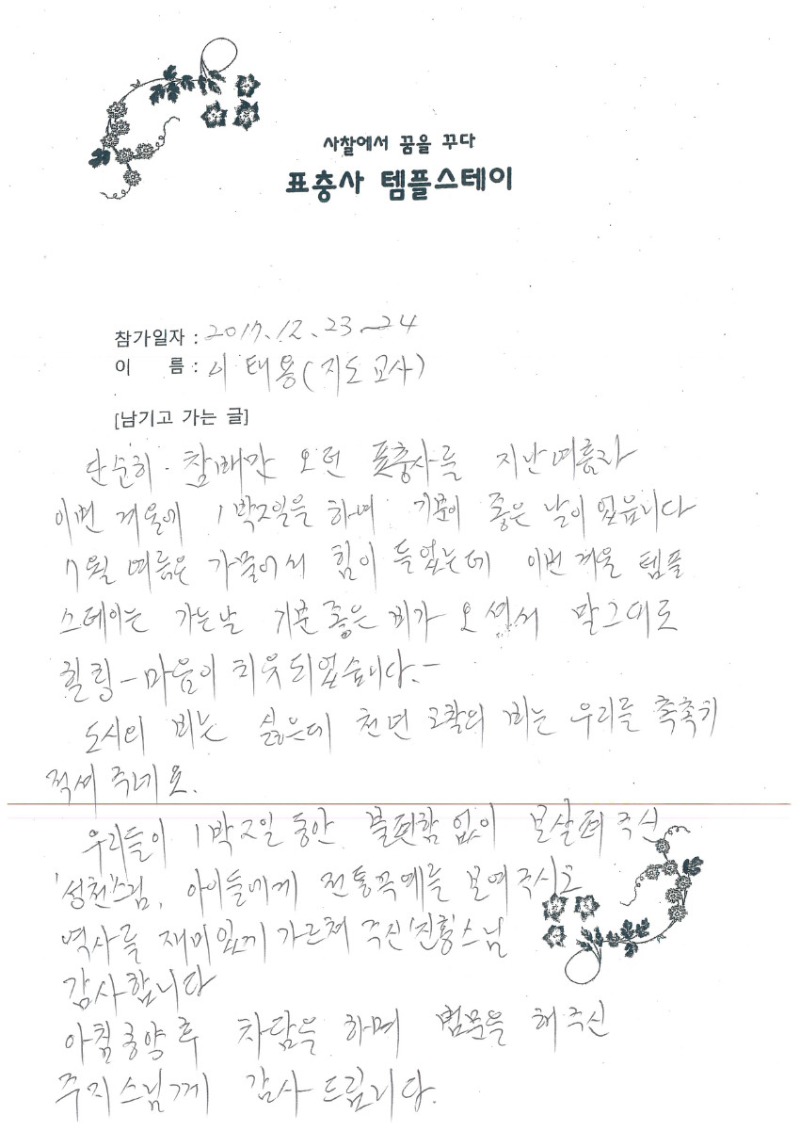 사찰에서 꿈을 꾸다
표충사 템플스테이
참가일자 : 2017. 12. 23~24
이 름 : 이태용(지도교사)
[남기고 가는 글]
단순히 참배만 오던 표충사를 지난여름과
이번 겨울에 1박2일을 하며 기분이 좋은 날이 었읍니다
7월 여름은 가물어서 힘이 들었는데 이번 겨울 템플
스테이는 가는날 기분 좋은 비가 오셔서 말그대로
힐링-마음이 치유되었습니다.-
도시의 비는 싫은데 천년 고찰의 비는 우리를 촉촉히
적셔 주네요.
우리들이 1박2일 동안 불편함 없이 보살펴 주신
'성천'스님, 아이들에게 전통목예를 보여주시고
역사를 재미있게 가르쳐 주신 '진흥'스님
감사합니다
아침공양 후 차담을 하며 법문을 해주신
주지스님께 감사드립니다.